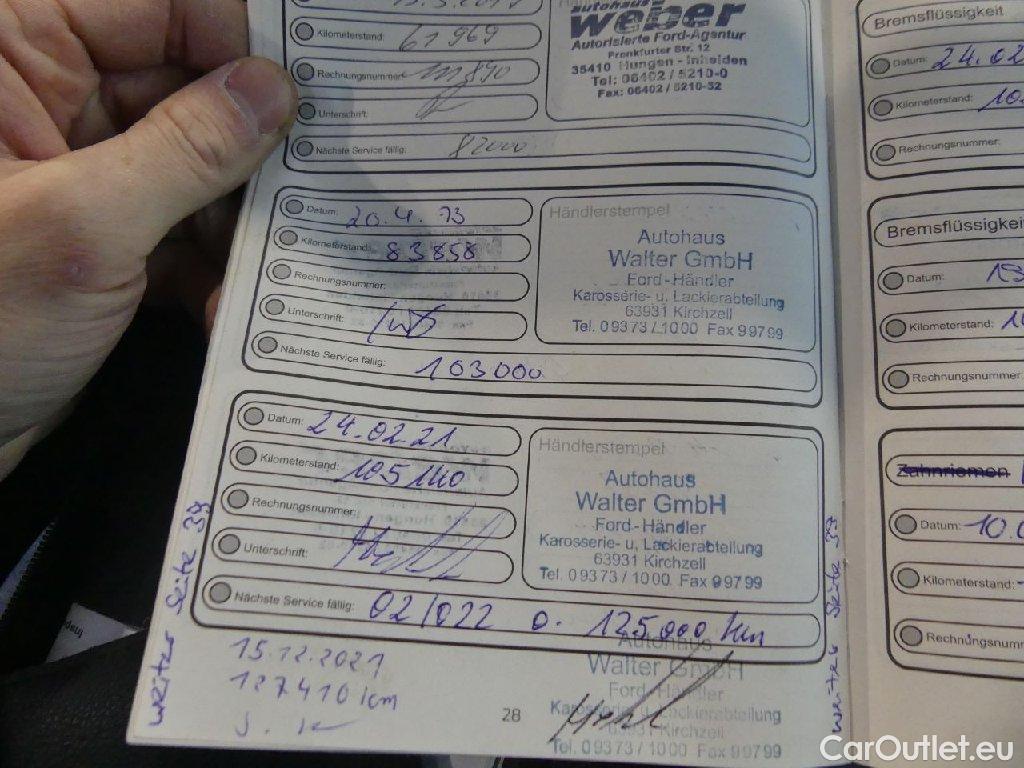 autohaus
weber
Autorisierte Ford-Agentur
Frankfurter Str. 12
35410 Hungen - Inheiden
Tel: 06402 / 5210-0
Fax: 06402 / 5210-32
Kilometerstand: 61969
Rechnungsnummer:
Unterschrift:
Nächste Service fällig: 82000
Datum: 20.4.
Händlerstempel
Kilometerstand: 83858
Rechnungsnummer:
Unterschrift:
Nächste Service fällig: 103000
Autohaus
Walter GmbH
Ford-Händler
Karosserie- u. Lackierabteilung
63931 Kirchzell
Tel. 09373/1000 Fax 99799
Datum: 24.02.21
Händlerstempel
Kilometerstand: 105140
Rechnungsnummer:
Unterschrift:
Nächste Service fällig: 02/022 o. 125.000 km
Autohaus
Walter GmbH
Ford-Händler
Karosserie- u. Lackierabteilung
63931 Kirchzell
Tel. 09373/1000 Fax 99799
weiter Seite 39
weiter Seite 39
15.12.2021
127410 km
Autohaus
Walter GmbH
Ford-Händler
Karosserie- u. Lackierabteilung
63931 Kirchzell
Tel. 09373/1000 Fax 99799
28
Bremsflüssigkeit
Datum: 24.02
Kilometerstand: 10
Rechnungsnummer:
Bremsflüssigkei
Datum:
Kilometerstand:
Rechnungsnummer
Zahnriemen
Datum: 10.
Kilometerstand:
Rechnungsnum
CarOutlet.eu